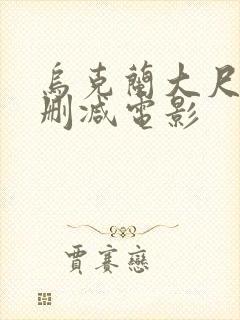 烏克蘭大尺
刪減電影
賈賽戀